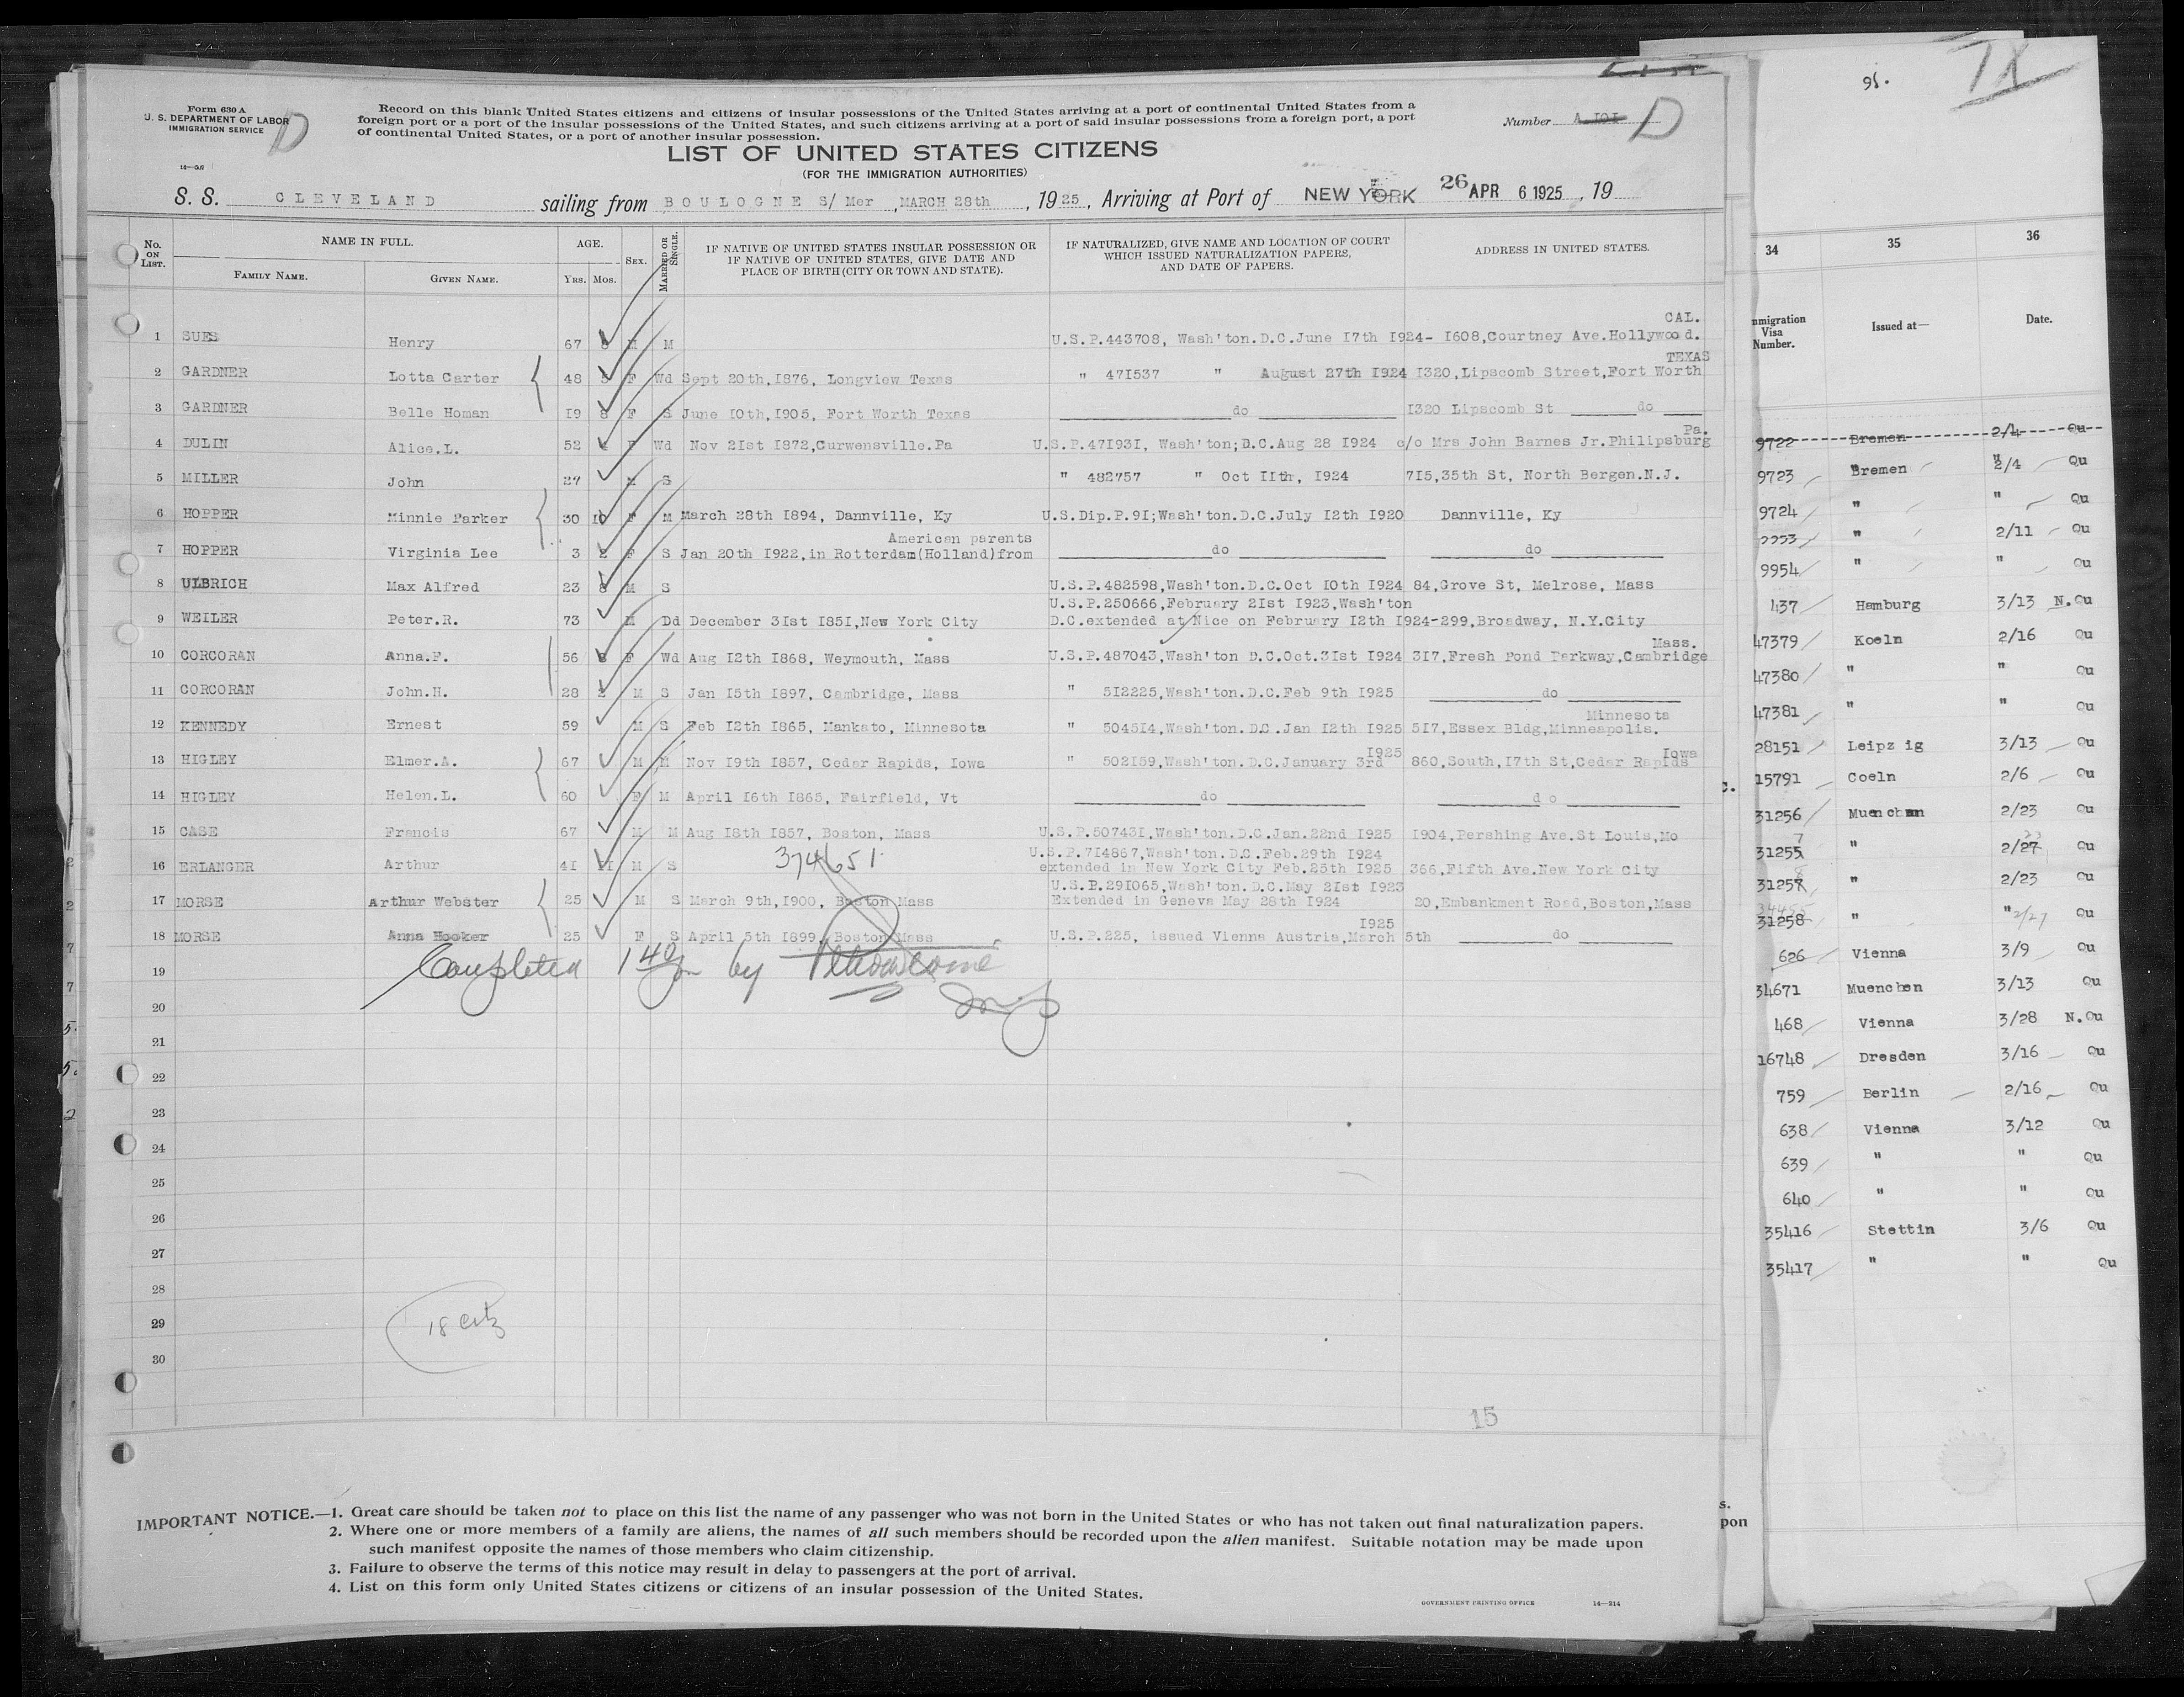 Form 630 A
U. S. DEPARTMENT OF LABOR
IMMIGRATION SERVICE
D
Record on this blank United States citizens and citizens of insular possessions of the United States arriving at a port of continental United States from a
foreign port or a port of the insular possessions of the United States, and such citizens arriving at a port of said insular possessions from a foreign port, a port
of continental United States, or a port of another insular possession.
Number A 101 D
LIST OF UNITED STATES CITIZENS
(FOR THE IMMIGRATION AUTHORITIES)
S. S. CLEVELAND sailing from BOULOGNE S/ Mer, MARCH 28th, 1925, Arriving at Port of NEW YORK 26 APR 6 1925, 19
No. ON LIST. NAME IN FULL. FAMILY NAME. GIVEN NAME. AGE. YRS. MOS. SEX. MARRIED OR SINGLE. IF NATIVE OF UNITED STATES INSULAR POSSESSION OR IF NATIVE OF UNITED STATES, GIVE DATE AND PLACE OF BIRTH (CITY OR TOWN AND STATE). IF NATURALIZED, GIVE NAME AND LOCATION OF COURT WHICH ISSUED NATURALIZATION PAPERS, AND DATE OF PAPERS. ADDRESS IN UNITED STATES.
CAL.
1 SUES Henry 67 M M U.S.P.443708, Wash'ton.D.C.June 17th 1924- 1608,Courtney Ave.Hollywood.
TEXAS
2 GARDNER Lotta Carter 48 F Wd Sept 20th,1876, Longview Texas " 471537 " August 27th 1924 1320,Lipscomb Street,Fort Worth
3 GARDNER Belle Homan 19 8 F S June 10th,1905, Fort Worth Texas do 1320 Lipscomb St do
Pa.
4 DULIN Alice.L. 52 F Wd Nov 21st 1872,Curwensville.Pa U.S.P.471931, Wash'ton;D.C.Aug 28 1924 c/o Mrs John Barnes Jr.Philipsburg
5 MILLER John 27 M S " 482757 " Oct 11th, 1924 715,35th St, North Bergen.N.J.
6 HOPPER Minnie Parker 30 10 F M March 28th 1894, Dannville, Ky U.S.Dip.P.91;Wash'ton.D.C.July 12th 1920 Dannville, Ky
American parents
7 HOPPER Virginia Lee 3 2 F S Jan 20th 1922,in Rotterdam(Holland)from do do
8 ULBRICH Max Alfred 23 8 M S U.S.P.482598,Wash'ton.D.C.Oct 10th 1924 84,Grove St, Melrose, Mass
U.S.P.250666,February 21st 1923,Wash'ton
9 WEILER Peter.R. 73 M Dd December 31st 1851,New York City D.C.extended at Nice on February 12th 1924-299,Broadway, N.Y.City
Mass.
10 CORCORAN Anna.F. 56 8 F Wd Aug 12th 1868, Weymouth, Mass U.S.P.487043,Wash'ton D.C.Oct.31st 1924 317,Fresh Pond Parkway,Cambridge
11 CORCORAN John.H. 28 2 M S Jan 15th 1897, Cambridge, Mass " 512225,Wash'ton.D.C.Feb 9th 1925 do
Minnesota
12 KENNEDY Ernest 59 M S Feb 12th 1865, Mankato, Minnesota " 504514,Wash'ton.D.C.Jan 12th 1925 517,Essex Bldg,Minneapolis.
1925 Iowa
13 HIGLEY Elmer.A. 67 M M Nov 19th 1857, Cedar Rapids, Iowa " 502159,Wash'ton.D.C.January 3rd 860,South,17th St,Cedar Rapids
14 HIGLEY Helen.L. 60 F M April 16th 1865, Fairfield, Vt do do
15 CASE Francis 67 M M Aug 18th 1857, Boston, Mass U.S.P.507431,Wash'ton.D.C.Jan.22nd 1925 1904,Pershing Ave.St Louis,Mo
374651 U.S.P.714867,Wash'ton.D.C.Feb.29th 1924
16 ERLANGER Arthur 41 11 M S extended in New York City Feb.25th 1925 366,Fifth Ave.New York City
U.S.P.291065,Wash'ton.D.C.May 21st 1923
17 MORSE Arthur Webster 25 M S March 9th,1900, Boston Mass Extended in Geneva May 28th 1924 20,Embankment Road,Boston,Mass
1925
18 MORSE Anna Hooker 25 F S April 5th 1899, Boston Mass U.S.P.225, issued Vienna Austria,March 5th do
Completed 1 40 pm by
19
20
21
22
23
24
25
26
27
28
29
30
18 Citz
15
IMPORTANT NOTICE.—1. Great care should be taken not to place on this list the name of any passenger who was not born in the United States or who has not taken out final naturalization papers.
2. Where one or more members of a family are aliens, the names of all such members should be recorded upon the alien manifest. Suitable notation may be made upon
such manifest opposite the names of those members who claim citizenship.
3. Failure to observe the terms of this notice may result in delay to passengers at the port of arrival.
4. List on this form only United States citizens or citizens of an insular possession of the United States.
GOVERNMENT PRINTING OFFICE 14—214
95.
34 35 36
mmigration Visa Number. Issued at— Date.
9722 Bremen 2/4 Qu
9723 Bremen 2/4 Qu
9724 " " Qu
" 2/11 Qu
9954 " " Qu
437 Hamburg 3/13 N.Qu
47379 Koeln 2/16 Qu
47380 " " Qu
47381 " " Qu
28151 Leipzig 3/13 Qu
15791 Coeln 2/6 Qu
31256 Muenchen 2/23 Qu
31255 7 " 2/27 23 Qu
31257 8 " 2/23 Qu
31258 " " 2/27 Qu
626 Vienna 3/9 Qu
34671 Muenchen 3/13 Qu
468 Vienna 3/28 N.Qu
16748 Dresden 3/16 Qu
759 Berlin 2/16 Qu
638 Vienna 3/12 Qu
639 " " Qu
640 " " Qu
35416 Stettin 3/6 Qu
35417 " " Qu
s.
pon